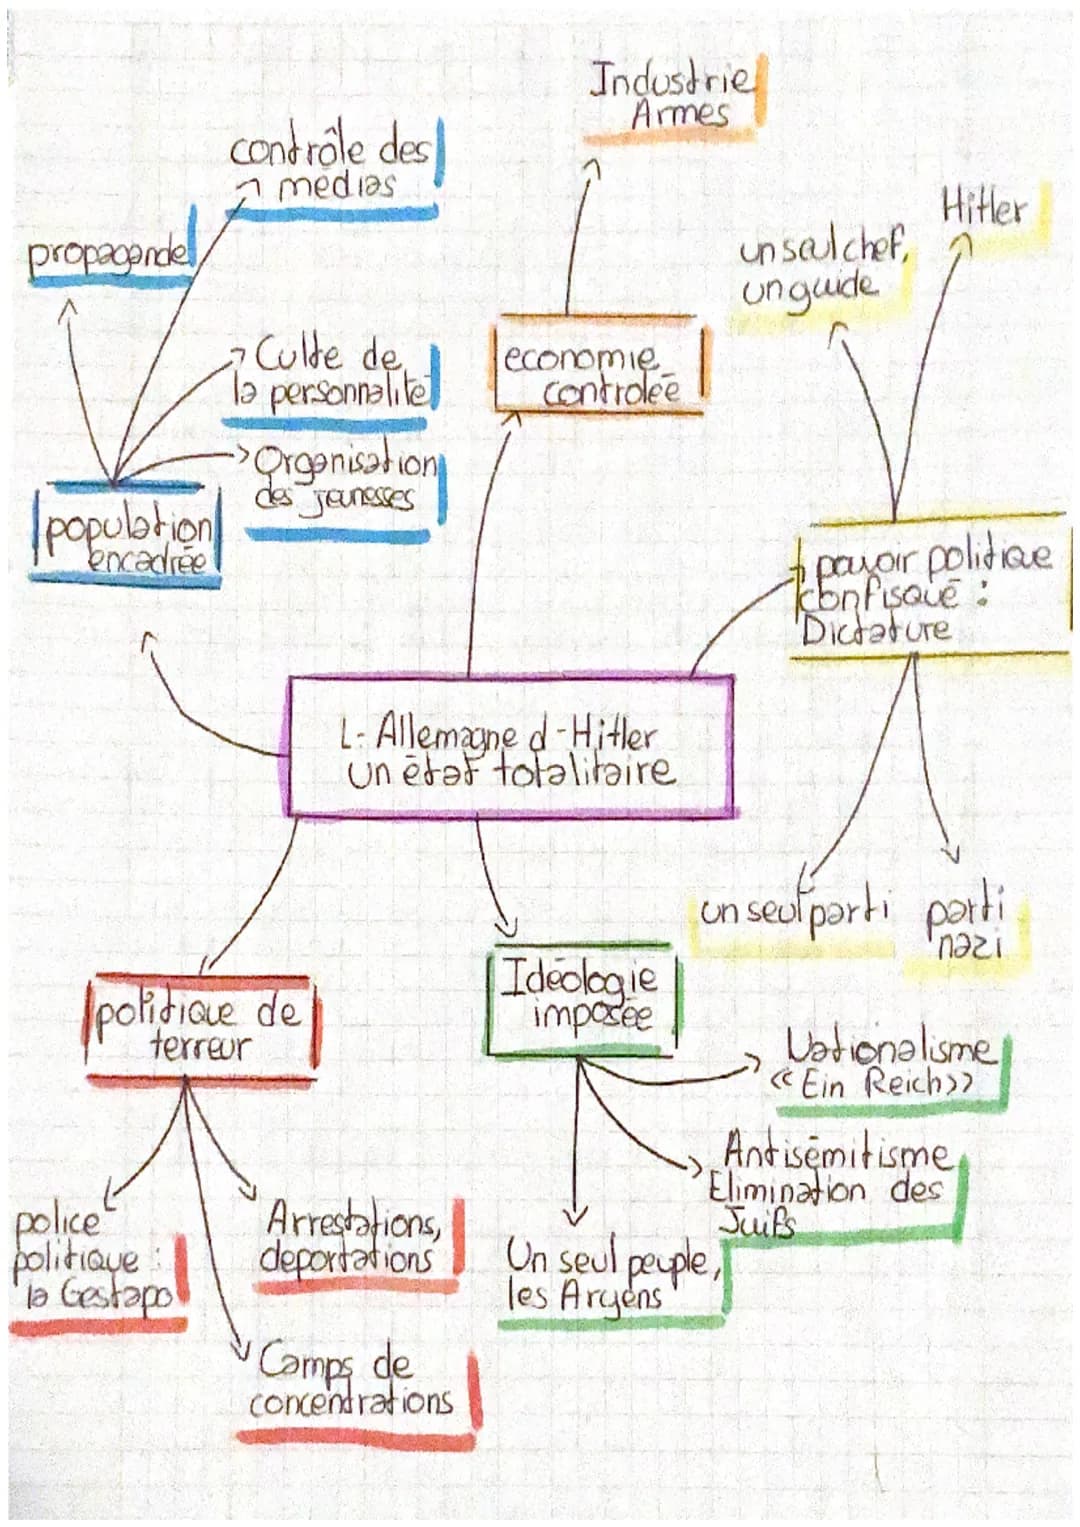 Industrie
Armes
contrôle des
médias
propagande
Hitler
un seul chef,
un guide
Culte de
la personnalité
economie
controlée
Organisation
des jeunesses
population
encadrée
pouvoir politique
confisqué :
Dictature
L'Allemagne d'Hitler
un état totalitaire
un seul parti
parti
nazi
Idéologie
imposée
politique de
terreur
Nationalisme
<< Ein Reich>>
Antisémitisme
Elimination des
Juifs
police
politique :
la Gestapo
Arrestations,
deportations
Un seul peuple,
les Aryens
Camps de
concentrations